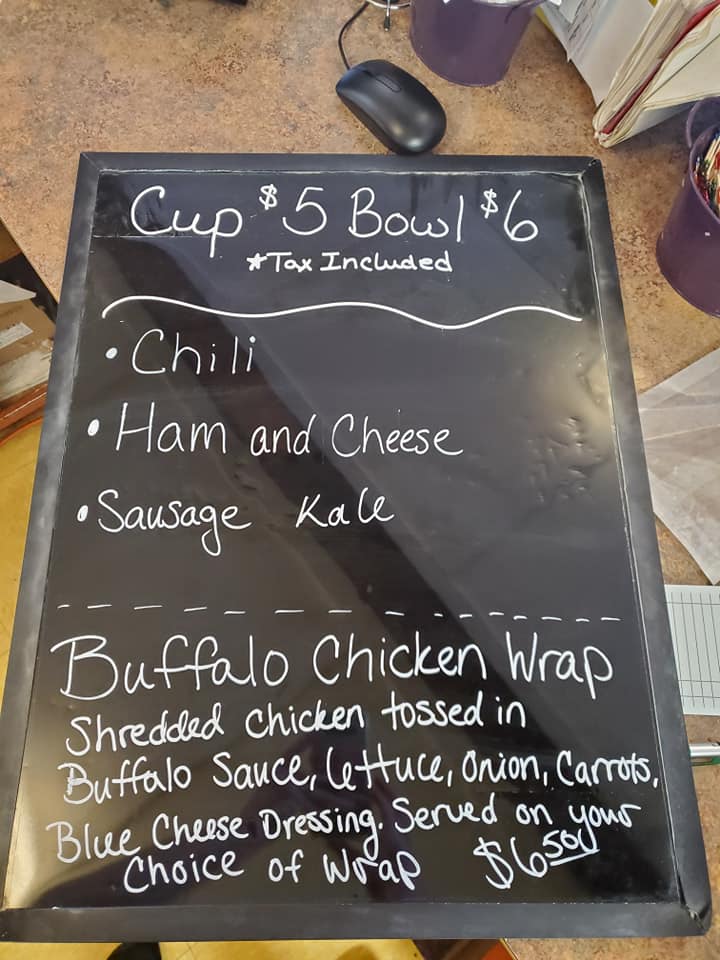 Cup $5 Bowl $6
*Tax Included
• Chili
• Ham and Cheese
• Sausage Kale
Buffalo Chicken Wrap
Shredded chicken tossed in
Buffalo Sauce, lettuce, Onion, Carrots,
Blue Cheese Dressing. Served on your
Choice of Wrap $6.50